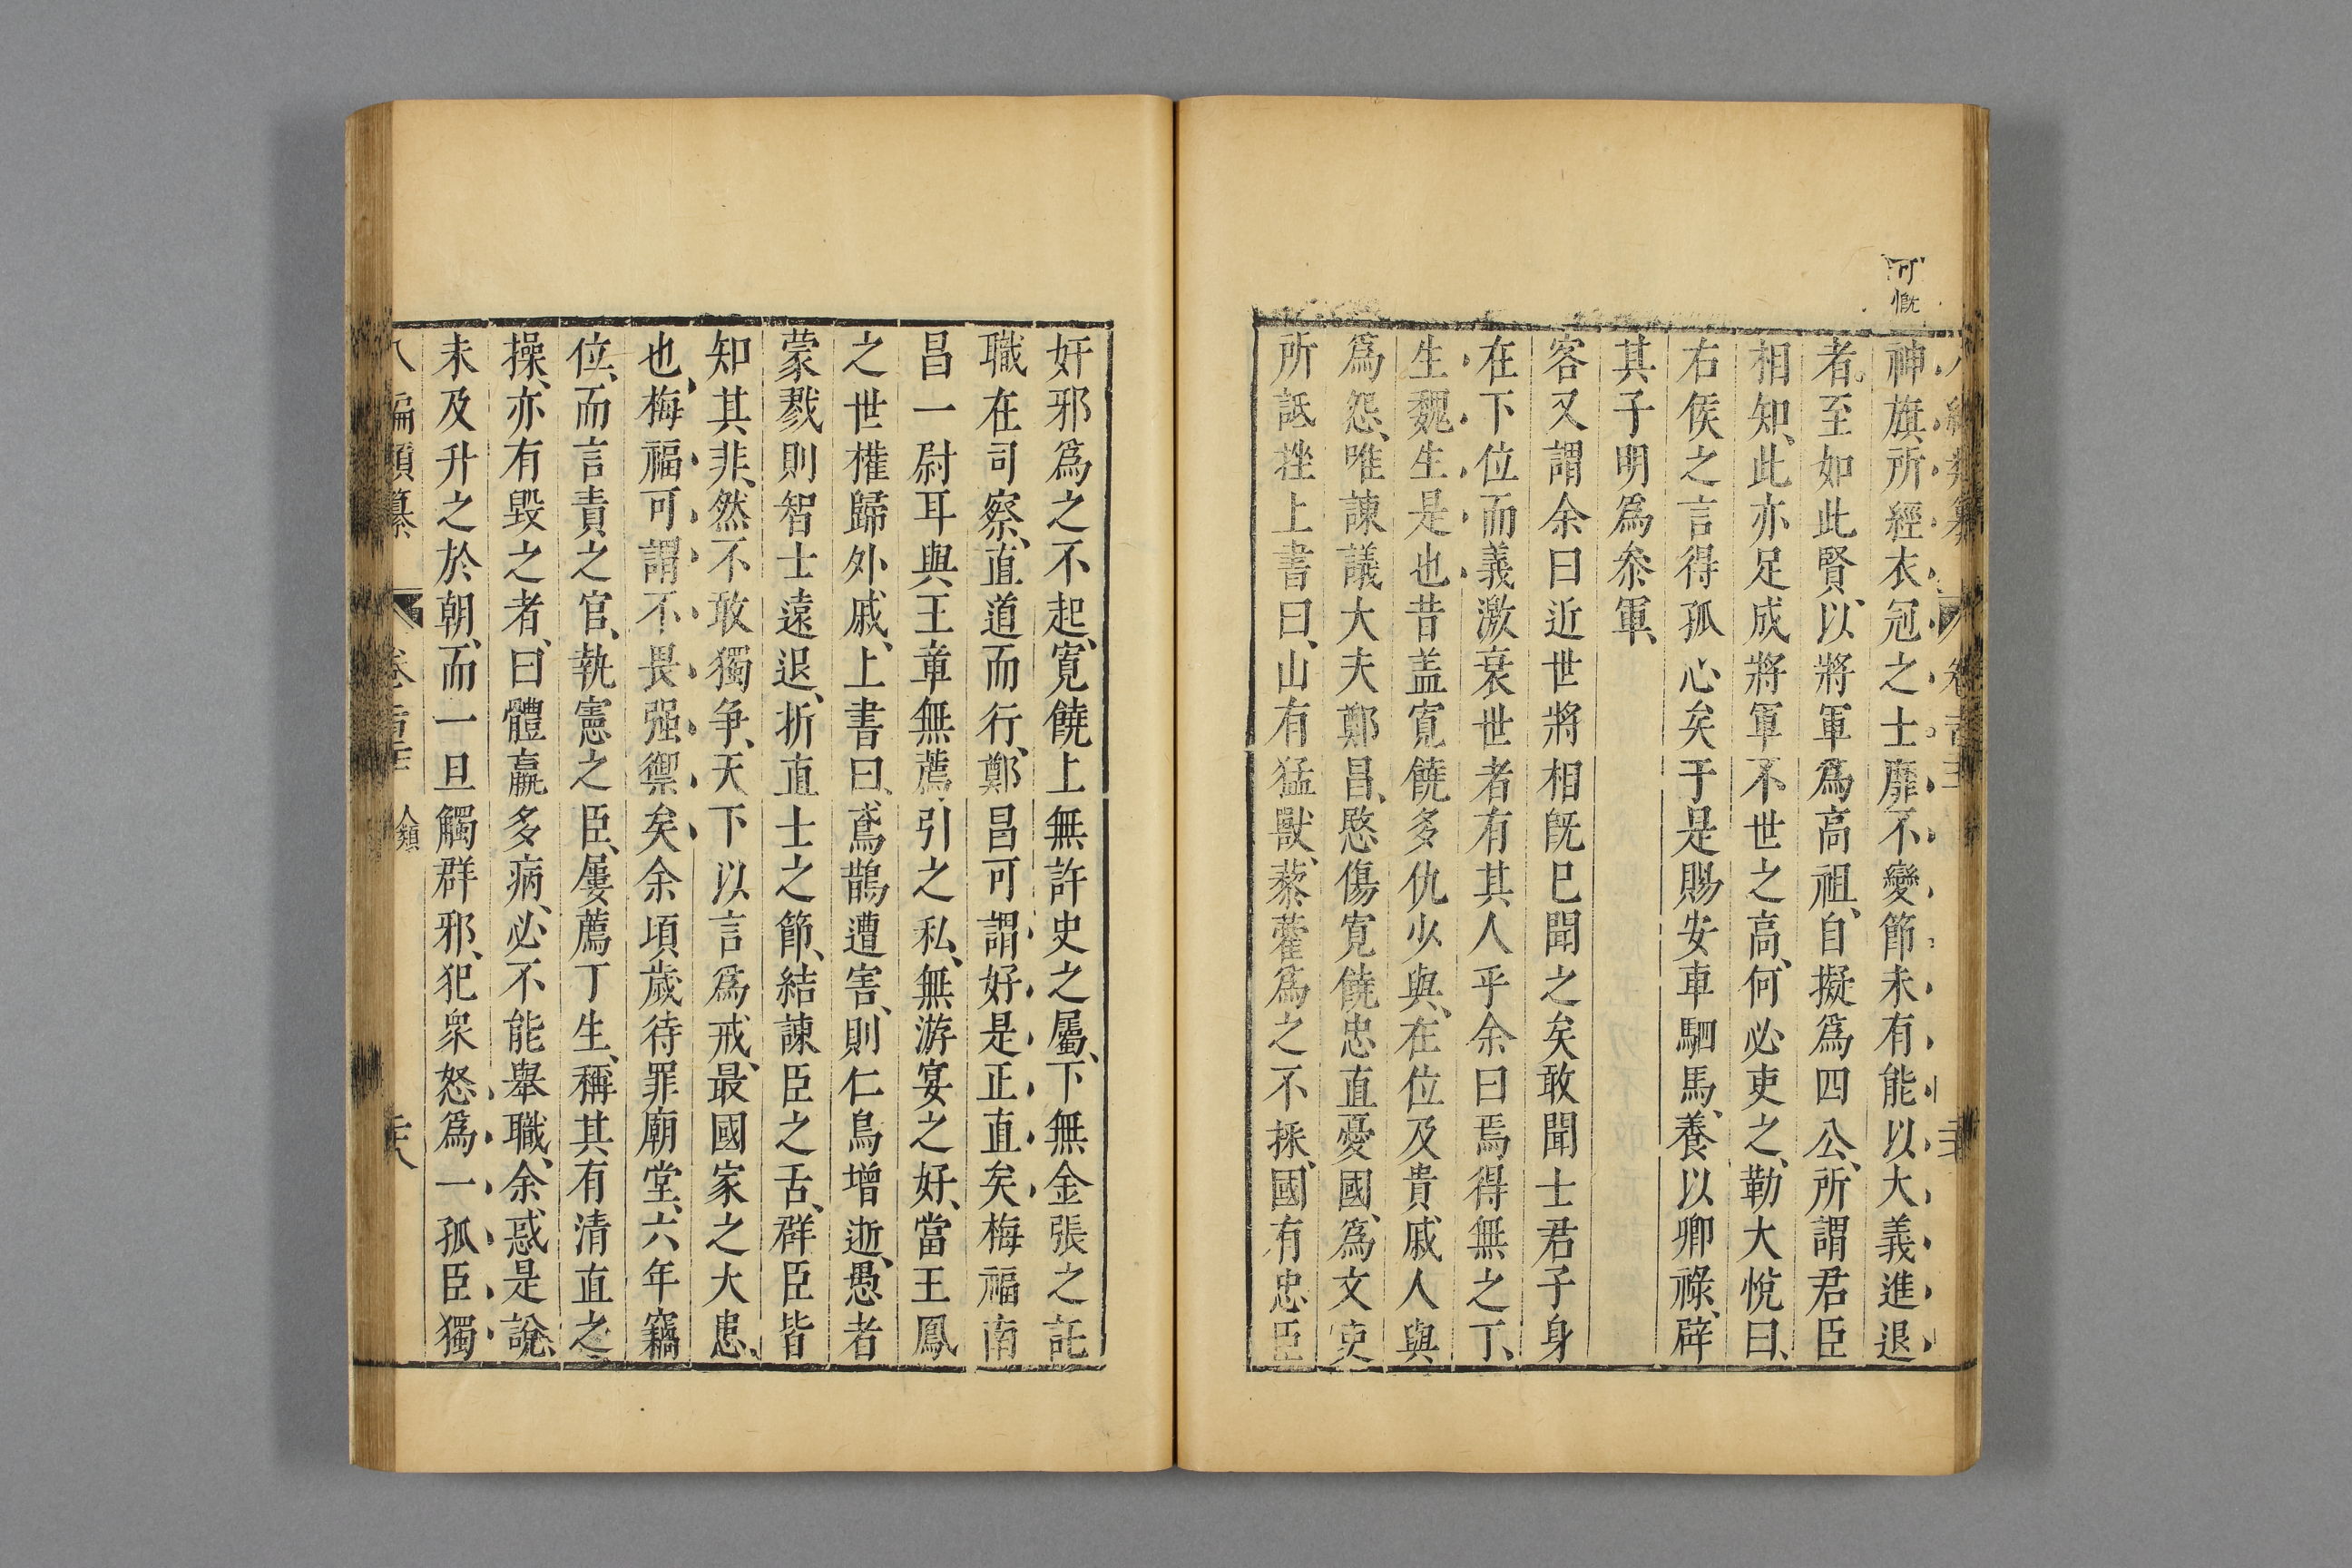 可慨
神旗所經衣冠之士靡不變節未有能以大義進退
者至如此賢以將軍爲高祖自擬爲四公所謂君臣
相知此亦足成將軍不世之高何必吏之勒大悅曰
右侯之言得孤心矣于是賜安車駟馬養以卿祿辟
其子明爲叅軍
客又謂余曰近世將相旣巳聞之矣敢聞士君子身
在下位而義激衰世者有其人乎余曰焉得無之丁
生魏生是也昔盖寬饒多仇少與在位及貴戚人與
爲怨唯諫議大夫鄭昌愍傷寬饒忠直憂國爲文吏
所詆挫上書曰山有猛獸藜藿爲之不採國有忠臣
奸邪爲之不起寬饒上無許史之屬下無金張之託
職在司察直道而行鄭昌可謂好是正直矣梅福南
昌一尉耳與王章無薦引之私無游宴之好當王鳳
之世權歸外戚上書曰鳶鵲遭害則仁鳥增逝愚者
蒙戮則智士遠退折直士之節結諫臣之舌群臣皆
知其非然不敢獨争天下以言爲戒最國家之大患
也梅福可謂不畏强禦矣余頃歲待罪廟堂六年竊
位而言責之官執憲之臣屢薦丁生稱其有清直之
操亦有毀之者曰體羸多病必不能舉職余惑是說
未及升之於朝而一旦觸群邪犯衆怒爲一孤臣獨
八編類纂 卷 人類